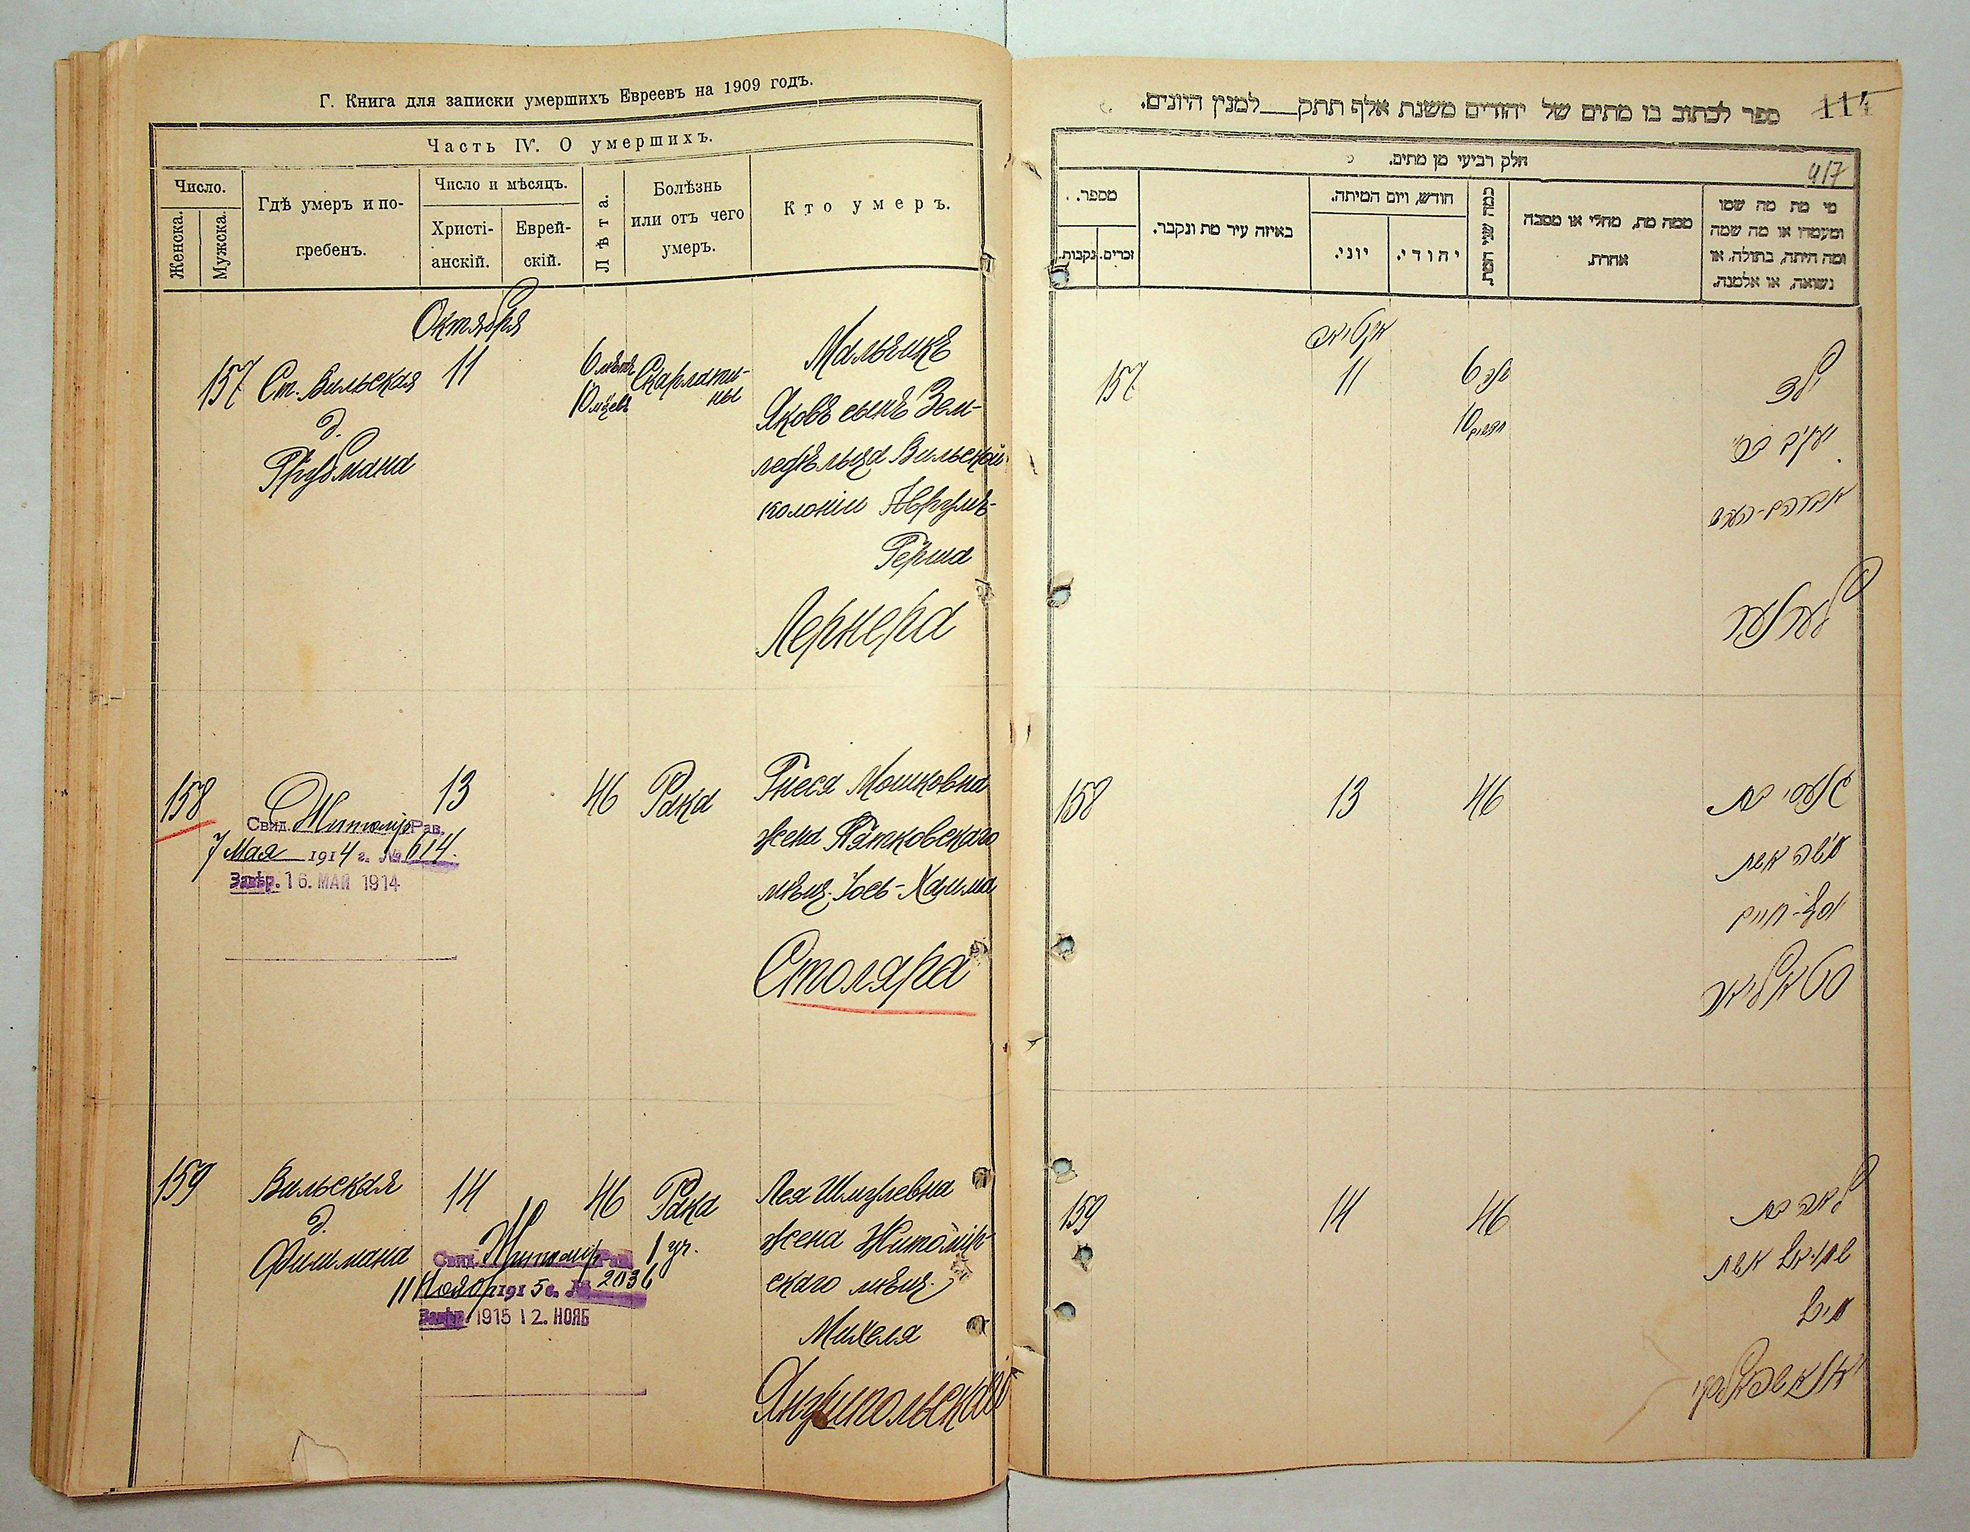 Г. Книга для записки умершихъ Евреевъ на 1909 годъ.
Часть IV. О умершихъ.
Число.
Женска.
Мужска.
Гдѣ умеръ и по-
гребенъ.
Число и мѣсяцъ.
Христі-
анскій.
Еврей-
скій.
Лѣта.
Болѣзнь
или отъ чего
умеръ.
Кто умеръ.
Октября
157 Ст. Вильская 11 6 лѣтъ Скарлати- Мальчикъ
10 мцевъ ны
д.
Яковъ сынъ Зем-
ледѣльца Вильской
колоніи
Герша
Лернера
158 Житомір 13 46 Рака Гнеся Мошковна
Свид. Рав.
7 Мая 1914 г. № 614.
Завѣр. 16. МАЙ 1914
жена
мѣщ. Іось-Хаима
Столяра
159 Вильская 14 46 Рака Лея Шмулевна
д.
Фишмана
жена Житомір-
скаго мѣщ.
Михеля
Свид. Житомір Рав.
11 Нояб 1915 г. № 2036
Завѣр. 1915 12. НОЯБ
1 уч.
Янушпольскаго
ספר לכתוב בו מתים של יהודים משנת אלף תתק___למנין היונים.
114
417
חלק רביעי מן מתים.
מספר.
זכרים.
נקבות.
באיזה עיר מת ונקבר.
חודש, ויום המיתה.
יוני.
יהודי.
כמה שני המת.
ממה מת, מחלי או מסבה
אחרת.
מי מת מה שמו
ומעמדו או מה שמה
ומה היתה, בתולה, או
נשואה, או אלמנה.
157 11 6 ילד
10
יעקב בן
אברהם-הערש
לערנער
158 13 46 גנעסי בת
משה אשת
יוסף-חיים
סטאליאר
159 14 46 לאה בת
שמואל אשת
מיכל
יאנאשפאלסקי